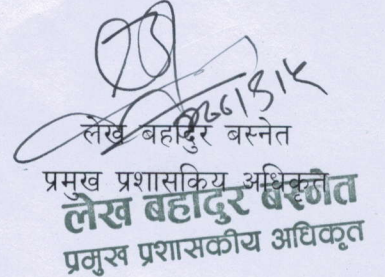 लेख बहादुर बस्नेत
प्रमुख प्रशासकिय अधिकृत
लेख बहादुर बस्नेत
प्रमुख प्रशासकीय अधिकृत